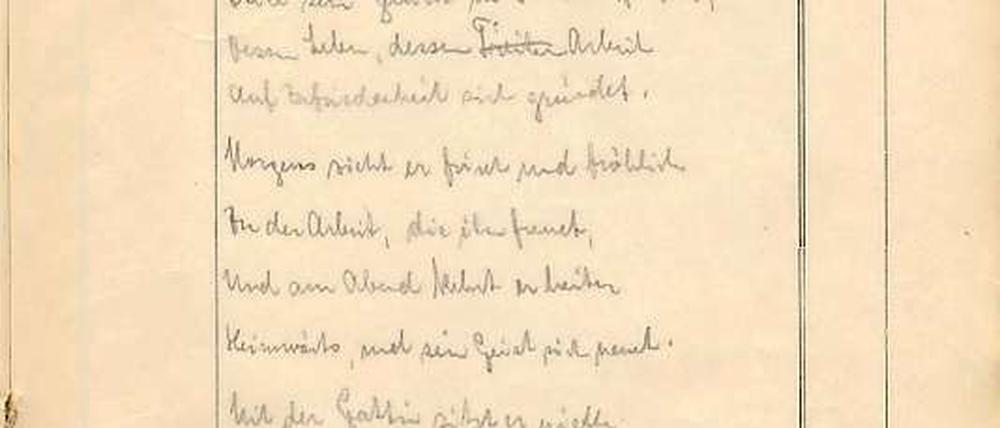 Dessen Leben, dessen Arbeit
Auf Zufriedenheit sich gründet.
Morgens zieht er frisch und fröhlich
Zu der Arbeit, die ihn freut,
Und am Abend kehrt er heiter
Heimwärts, und sein Geist sich neut.
Mit der Gattin sitzt er